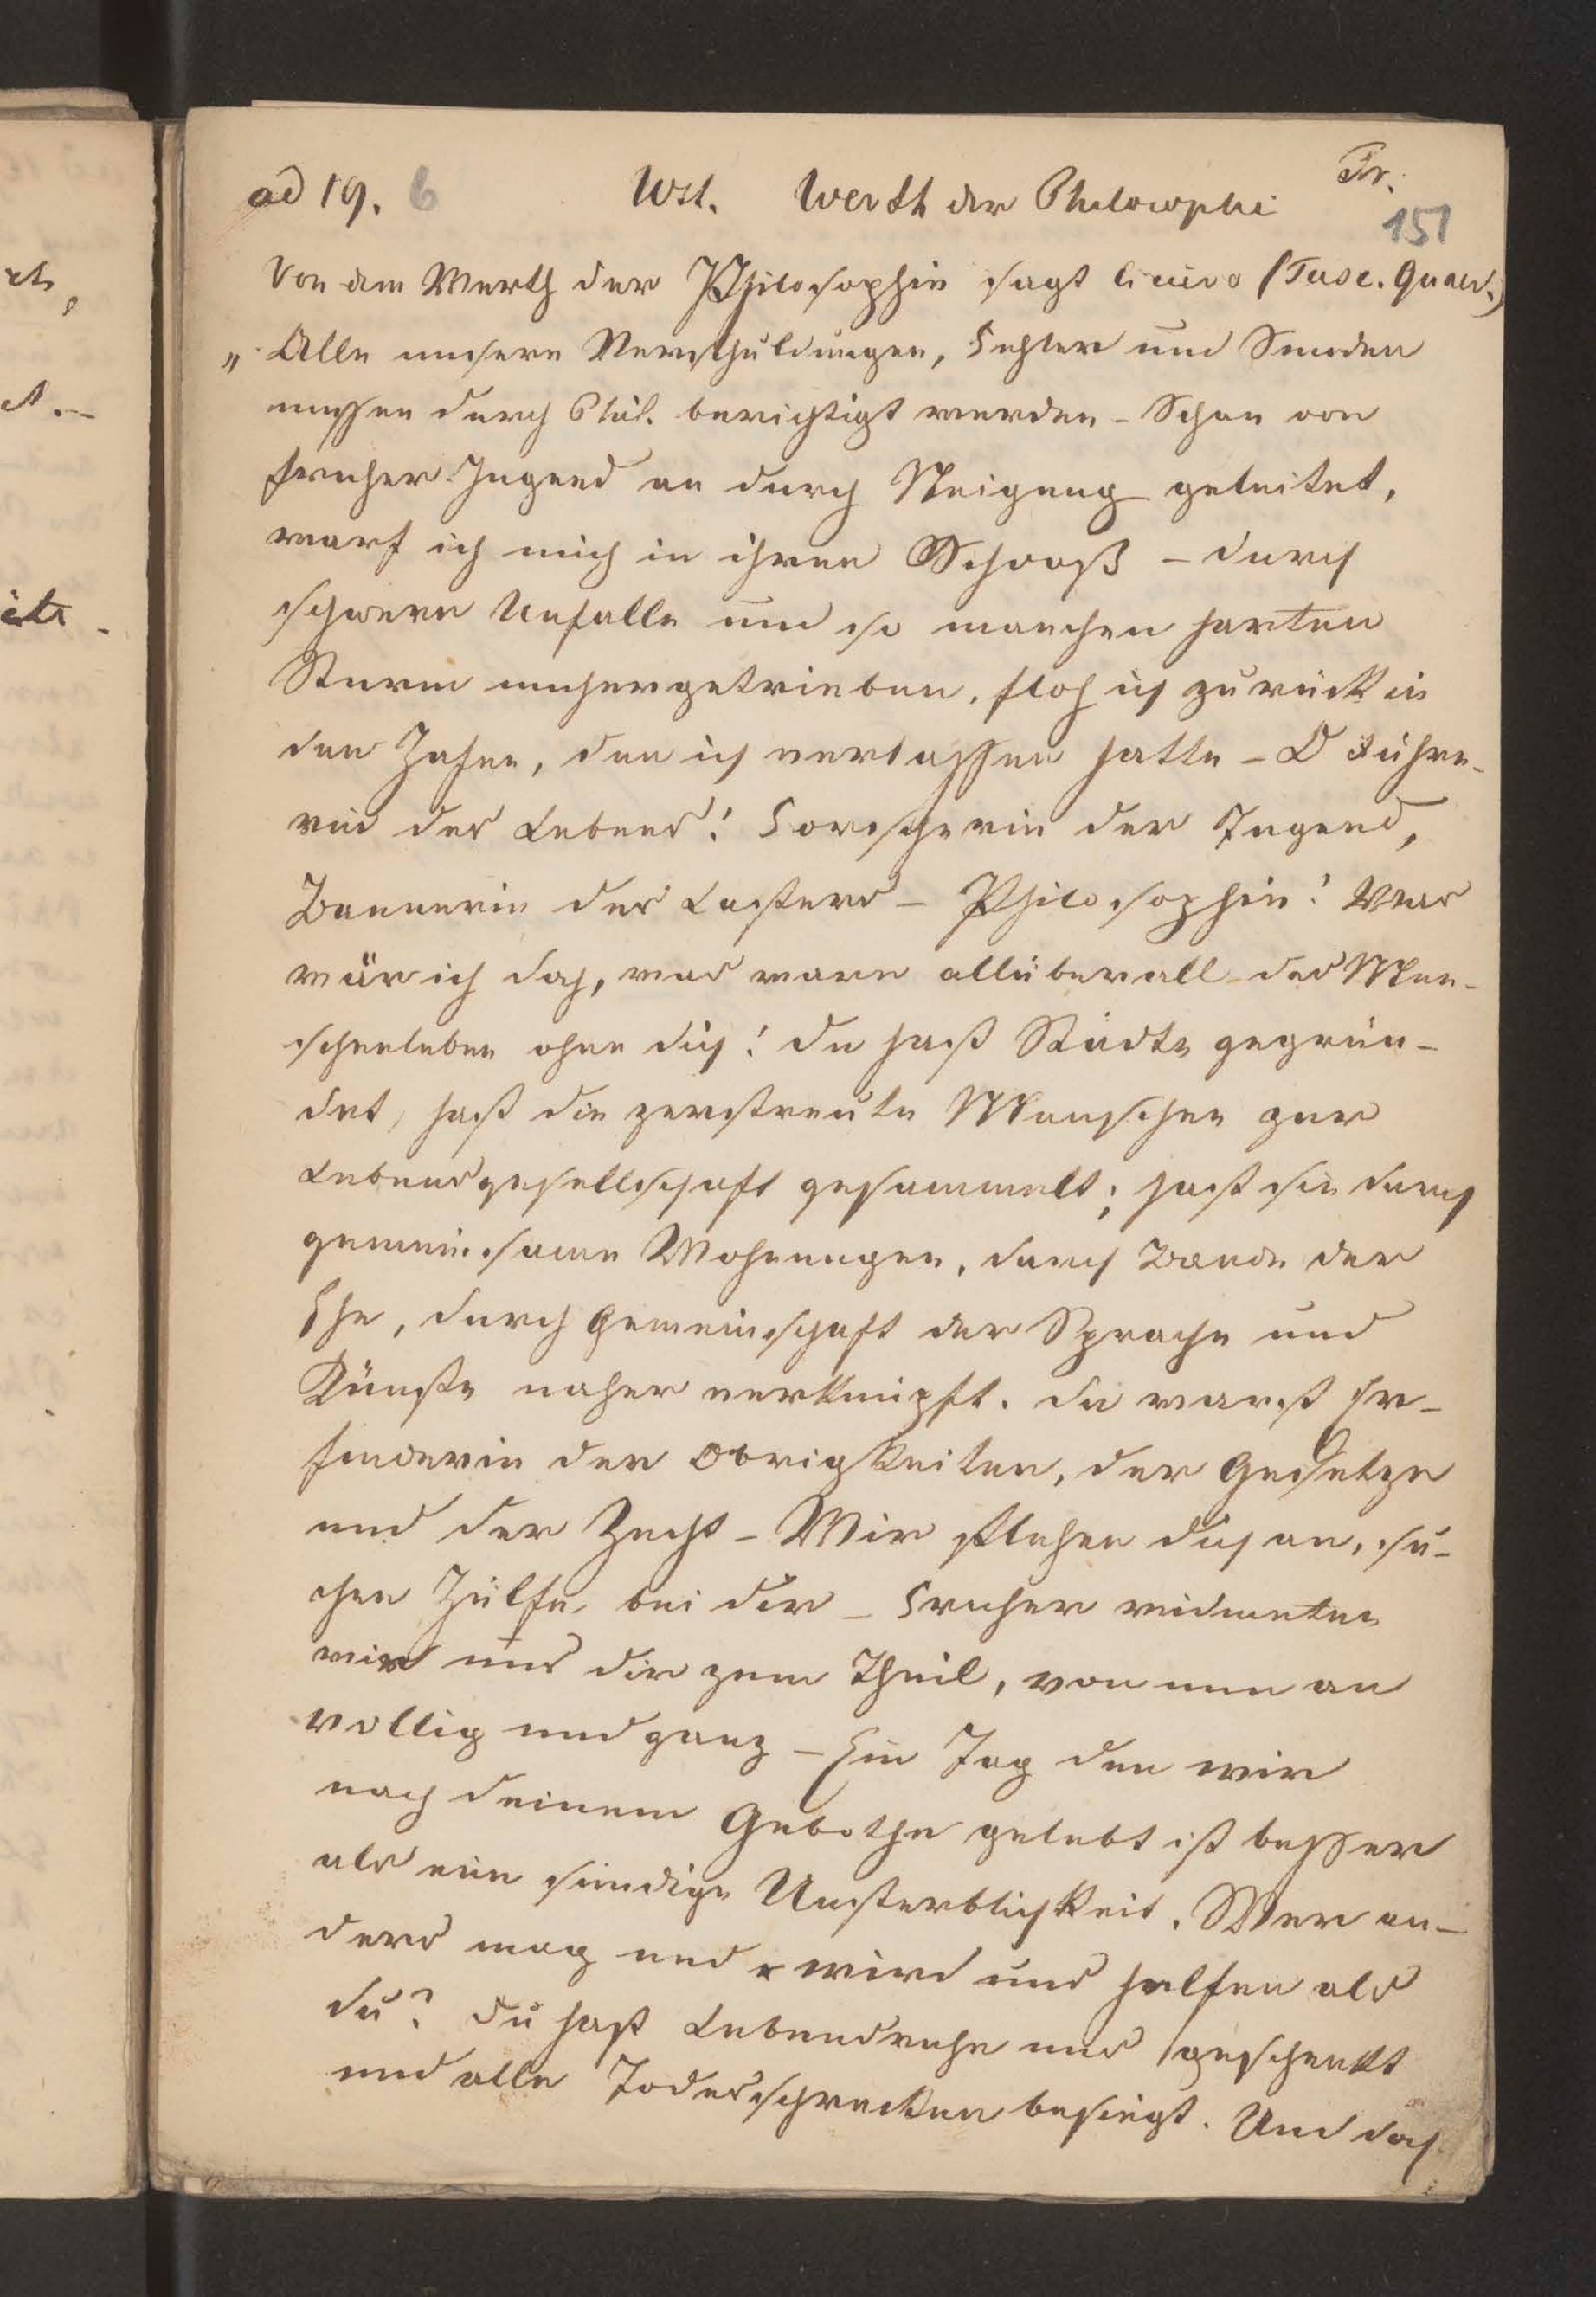 ad 19. 6 Wst. Werth der Philosophie Fr.
151
Von dem Werth der Philosophie sagt Cicero (Tusc. Quaest.)
„Alle unsere Verschuldungen, Fehler und Sünden
müssen durch Phil. berichtigt werden – Schon von
früher Jugend an durch Neigung geleitet,
warf ich mich in ihren Schooß – durch
schwere Unfälle und so manchen harten
Sturm umhergetrieben, floh ich zurück in
den Hafen, den ich verlassen hatte – O Führe-
rin des Lebens! Forscherin der Tugend,
Bannerin des Lasters – Philosophie! Was
wär ich doch, was wäre allüberall das Men-
schenleben ohne dich! du hast Städte gegrün-
det, hast die zerstreute Menschen zur
Lebensgesellschaft gesammelt; hast sie durch
gemeinsame Wohnungen, durch Bande der
Ehe, durch Gemeinschaft der Sprache und
Künste näher verknüpft. du warst Er-
finderin der Obrigkeiten, der Gesetze
und der Zucht – Wir flehen dich an, su-
chen Hülfe bei dir – Früher widmeten
wir uns dir zum Theil, von nun an
völlig und ganz – Ein Tag den wir
nach deinem Gebothe gelebt ist besser
als eine sündige Unsterblichkeit. Wer an-
ders mag und wird uns helfen als
du? du hast Lebensruhe uns geschenkt
und alle Todesschrecken besiegt. Und doch